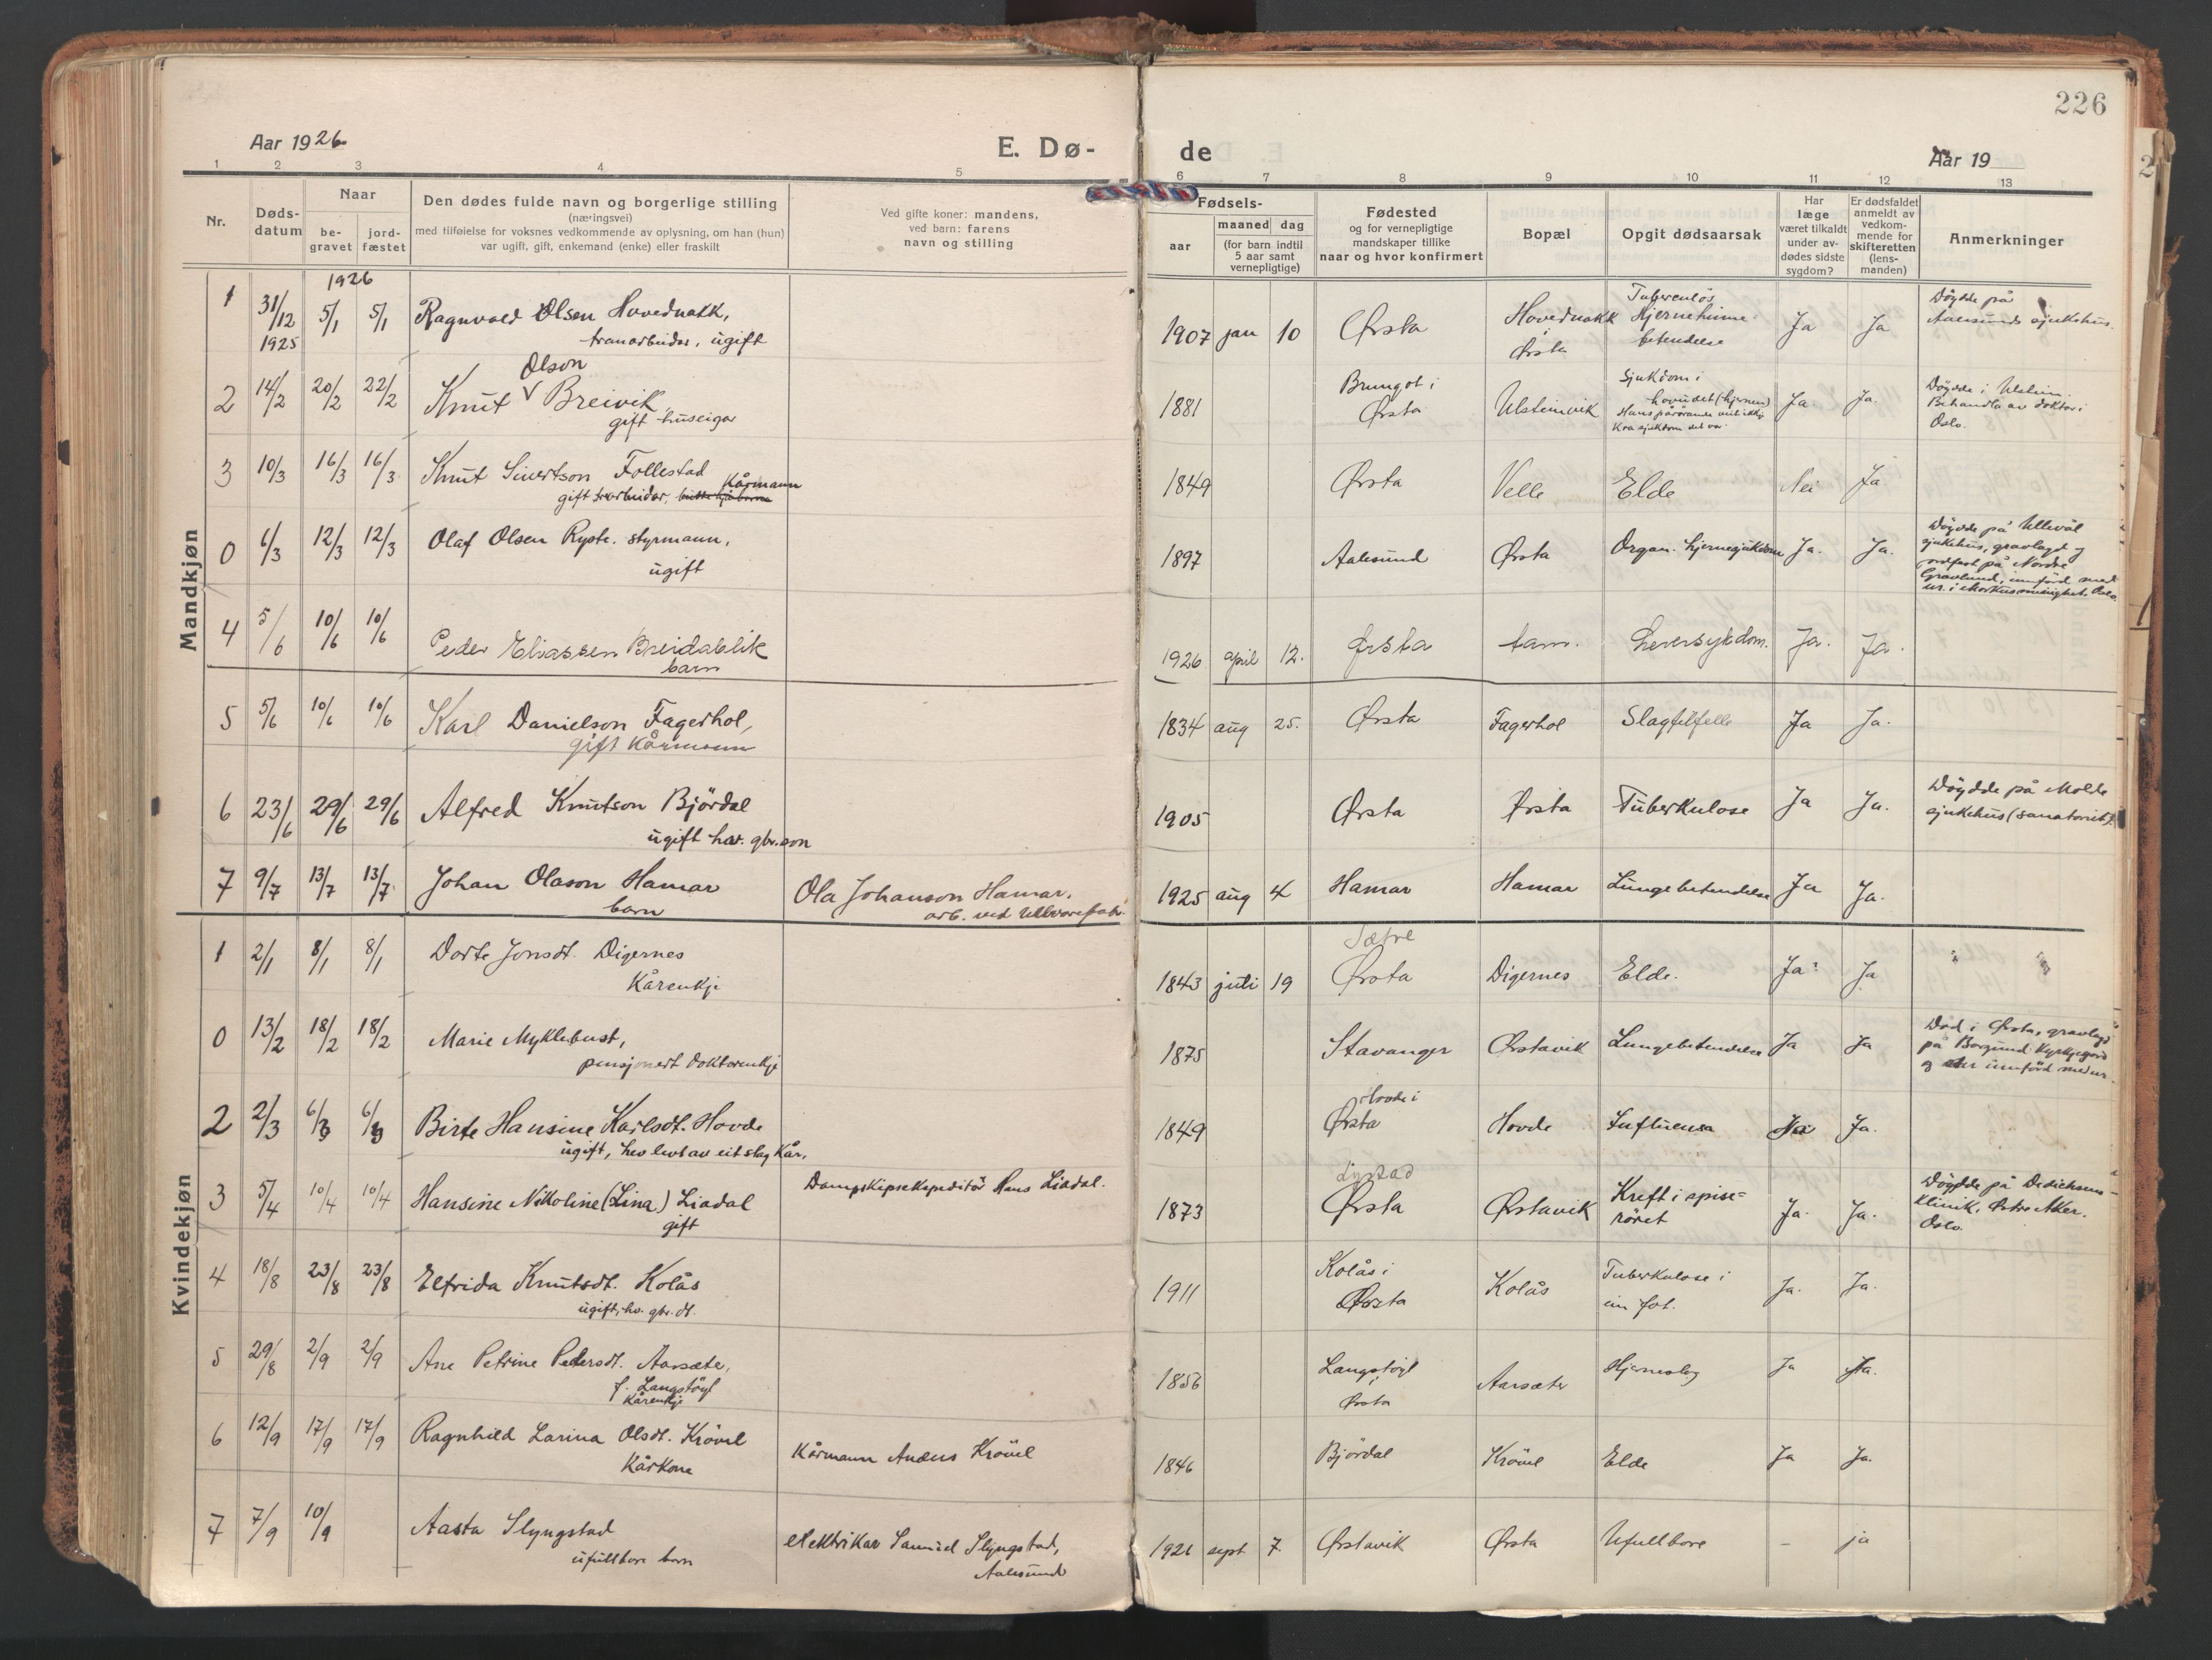 226
Aar 1926
E. Dø-
de
Aar 19
1 2 3 4 5 6 7 8 9 10 11 12 13
Nr.
Døds-
datum
Naar
be-
gravet
jord-
fæstet
Den dødes fulde navn og borgerlige stilling
(næringsvei)
med tilføielse for voksnes vedkommende av oplysning, om han (hun)
var ugift, gift, enkemand (enke) eller fraskilt
Ved gifte koner: mandens,
ved barn: farens
navn og stilling
Fødsels-
aar
maaned dag
(for barn indtil
5 aar samt
vernepligtige)
Fødested
og for vernepligtige
mandskaper tillike
naar og hvor konfirmert
Bopæl
Opgit dødsaarsak
Har
læge
været tilkaldt
under av-
dødes sidste
sygdom?
Er dødsfaldet
anmeldt av
vedkom-
mende for
skifteretten
(lens-
manden)
Anmerkninger
Mandkjøn
1926
1 31/12 1925 5/1 5/1 Ragnvald Olsen Hovednakk,
tranarbeider, ugift
1907 jan 10 Ørsta Hovednakk i Ørsta Tuberculøs Hjernehinne-betendelse Ja Ja Døydde på Aalesunds sjukehus.
2 14/2 20/2 22/2 Knut Olson Breivik
gift huseigar
1881 Brungot i Ørsta Ulsteinvik Sjukdom i hovudet (hjernen) Ja. Ja. Døydde i Ulstein. Behandla av doktor i Oslo.
3 10/3 16/3 16/3 Knut Sivertson Follestad
gift Kårmann
1849 Ørsta Velle Elde Nei Ja
0 6/3 12/3 12/3 Olaf Olsen Ryste. styrmann,
ugift
1897 Aalesund Ørsta Organ. hjernesjukdom Ja. Ja. Døydde på Ullevål sjukehus, gravlagd og jordfest på Nordre Gravlund, innførd med nr. i Markus menighet Oslo
4 5/6 10/6 10/6 Peder Eliassen Breidablik
barn
1926 april 12. Ørsta sam. Leversykdom. Ja. Ja.
5 5/6 10/6 10/6 Karl Danielson Fagerhol,
gift Kårmann
1834 aug 25. Ørsta Fagerhol Slagtilfelle Ja Ja.
6 23/6 29/6 29/6 Alfred Knutson Björdal
ugift hav. gbr. son
1905 Ørsta Ørsta Tuberkulose Ja Ja. Døydde på Molde sjukehus (sanatoriet).
7 9/7 13/7 13/7 Johan Olason Hamar
barn
Ola Johanson Hamar.
arb. ved Ullvarefabr.
1925 aug 4 Hamar Hamar Lungebetendelse Ja Ja.
Kvindekjøn
1 2/1 8/1 8/1 Dorte Jonsdt. Digernes
Kårenkje
1843 juli 19 Sætre Ørsta Digernes Elde. Ja Ja
0 13/2 18/2 18/2 Marie Myklebust,
pensjonert doktorenkje
1875 Stavanger Ørstavik Lungebetendelse Ja Ja Død i Ørsta, gravlagd på Borgund Kyrkjegard og der innförd med nr.
2 2/3 6/3 6/3 Birte Hansine Karlsdt. Hovde
ugift, hev levt av eit slag Kår.
1849 Hovde i Ørsta Hovde Influensa Nei Ja.
3 5/4 10/4 10/4 Hansine Nikoline (Lina) Liadal
gift
Dampskipsekspeditör Hans Liadal.
1873 Ørsta Ørstavik Kreft i spise=
röret Ja. Ja. Døydde på Dedichens klinik, Østre Aker. Oslo
4 18/8 23/8 23/8 Elfrida Knutsdt. Kolås
ugift, hv. gbr. dt.
1911 Kolås i Ørsta Kolås Tuberkulose i ein fot. Ja. Ja.
5 29/8 2/9 2/9 Ane Petrine Pedersdt. Aarsæter,
f. Langstöyl
Kårenkje
1856 Langstöyl i Ørsta Aarsæter Hjerneslag Ja Ja.
6 12/9 17/9 17/9 Ragnhild Larina Olsdt. Krövel
Kårkone
Kårmann Anders Krövel
1846 Björdal Krövel Elde Ja Ja.
7 7/9 10/9 Aasta Slyngstad
ufullbore barn
elektrikar Samuel Slyngstad,
Aalesund
1926 sept 7. Ørstavik Ørsta Ufullbore - ja